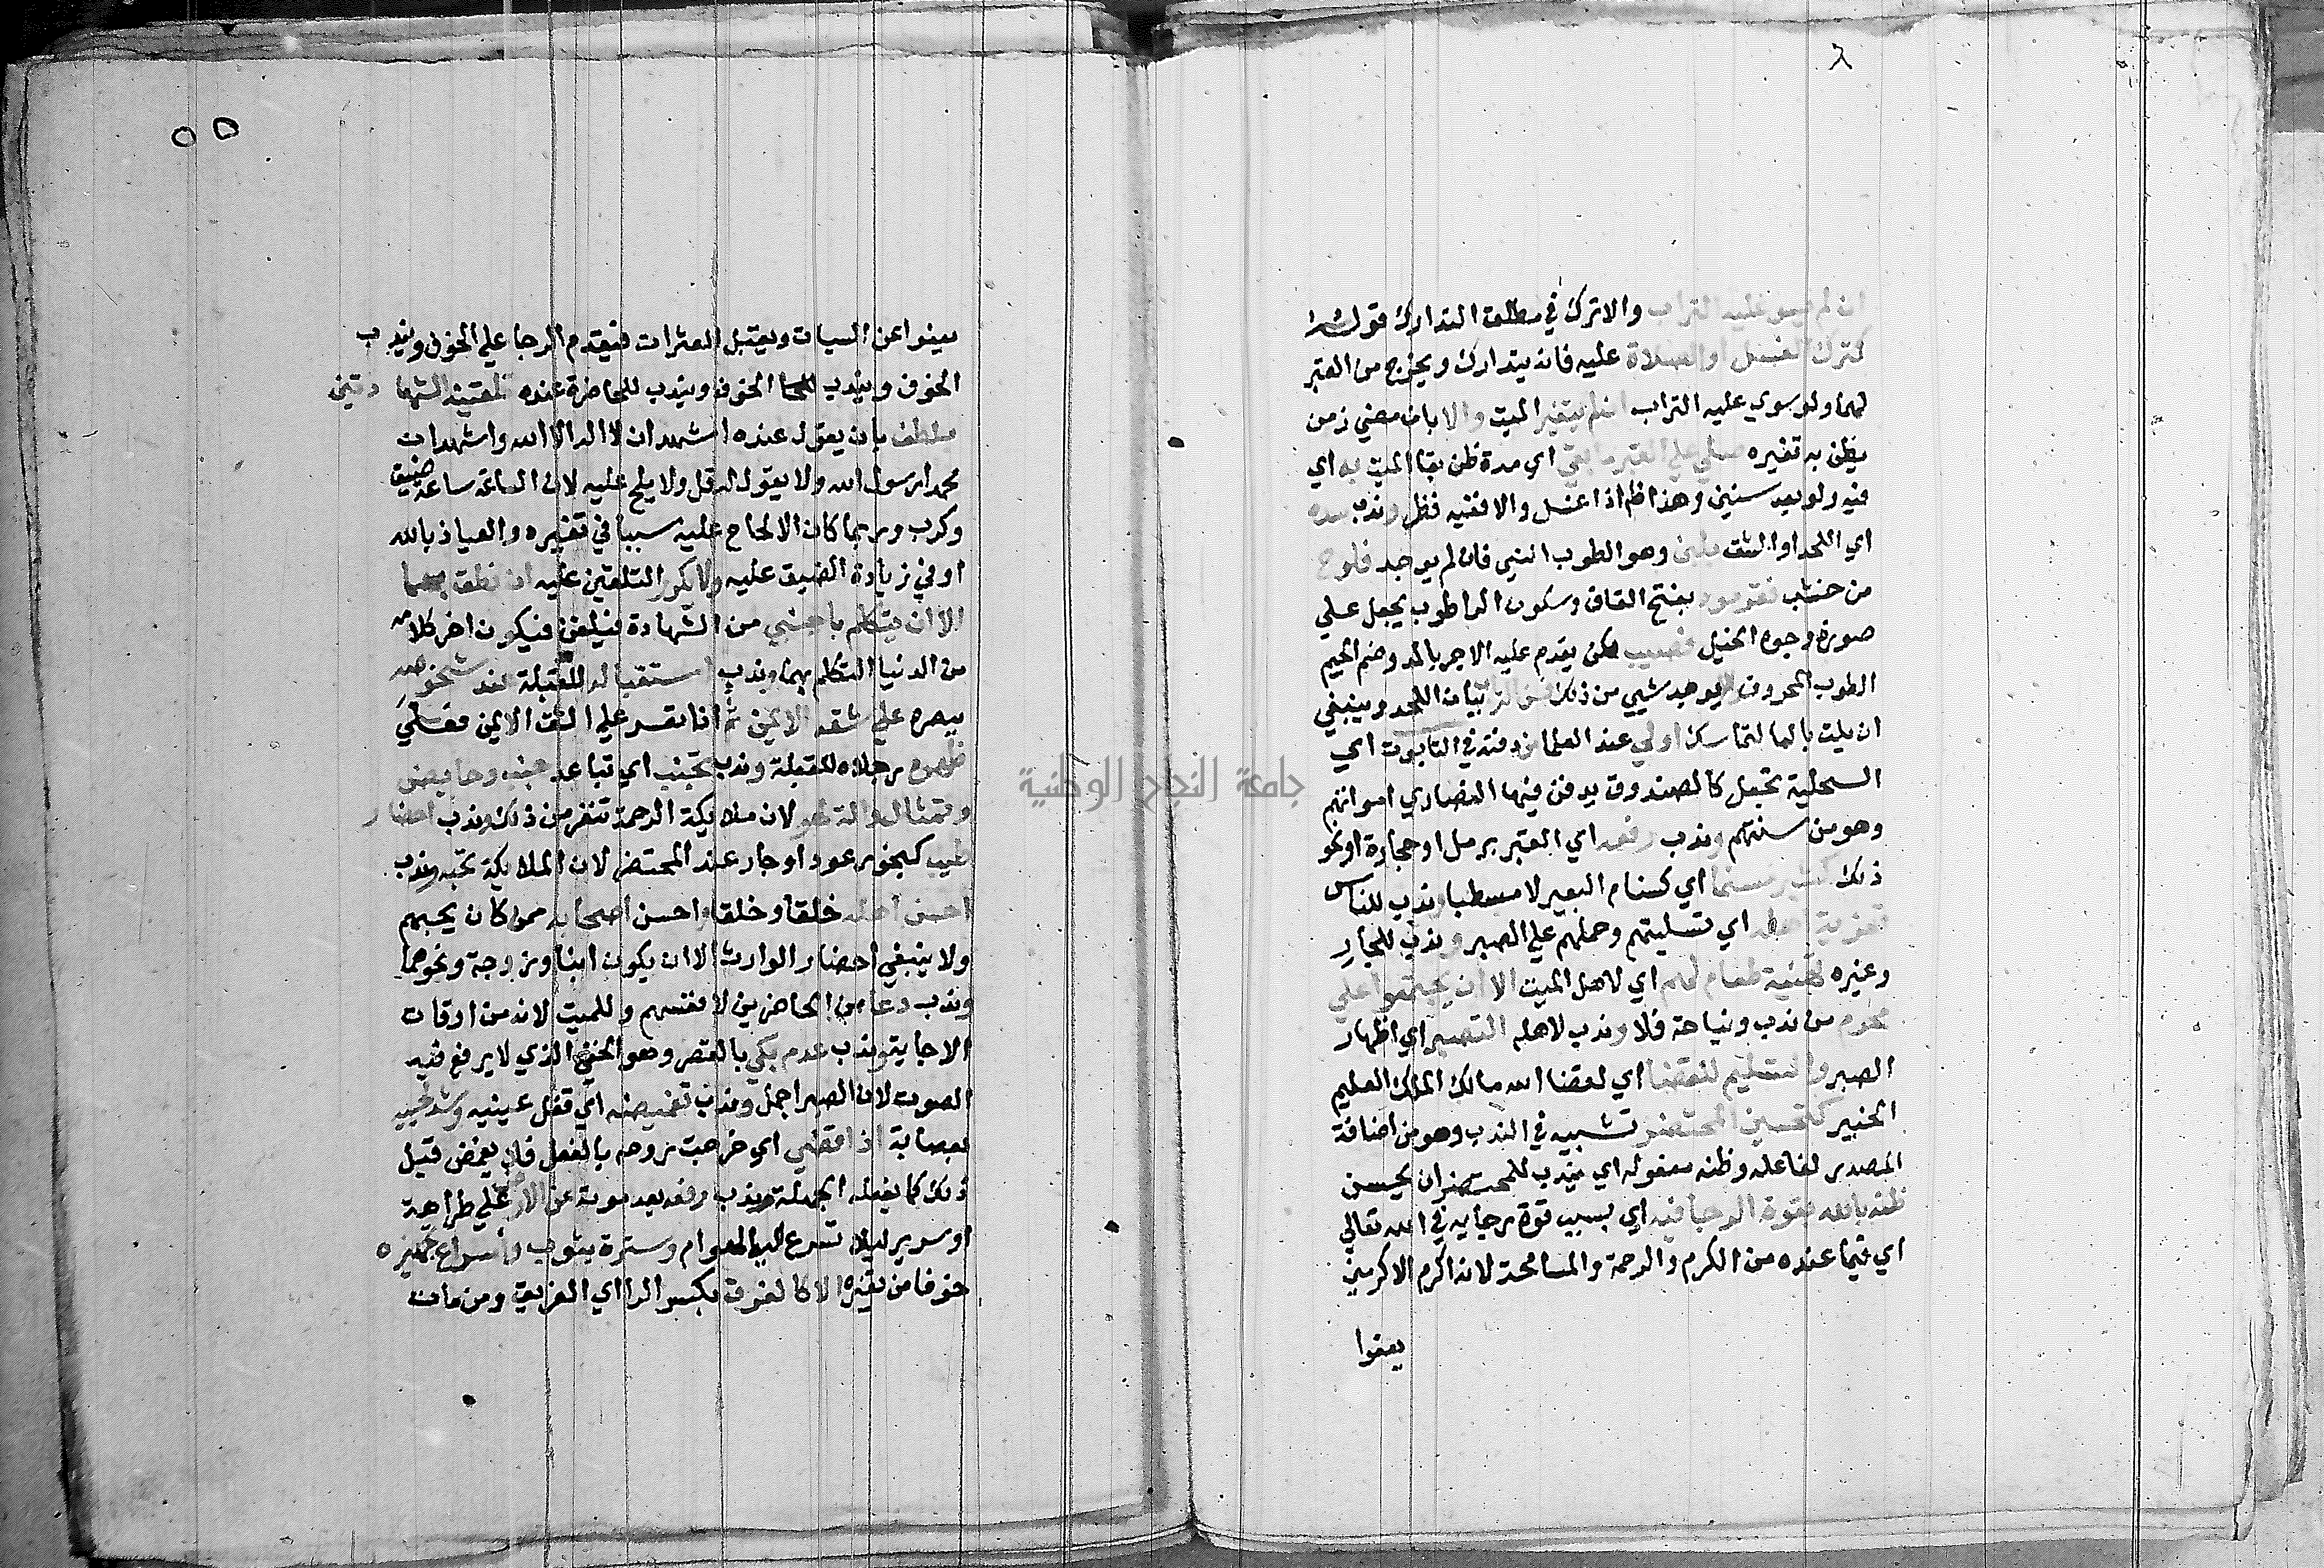 ان لم يسو عليه التراب والا ترك في مطلق التدارك قوله
كترك الغسل او الصلاة عليه فانه يتدارك ويخرج من القبر
لهما ولو سوي عليه التراب ان لم يتغير الميت والا بان مضي زمن
يظن به تغيره صلي علي القبر ما بقي اي مدة ظن بقا الميت به اي
فيه ولو بعد سنين وهذا اذا غسل والا ففيه نظر وندب سده
اي اللحد او الشق بلبن وهو الطوب الني فان لم يوجد فلوح
من خشب فقرمود بفتح القاف وسكون الرا طوب يجعل علي
صورة وجوه الخيل فقصب لكن يقدم عليه الاجر بالمد وضم الجيم
الطوب المحروق لم يوجد شيي من ذلك باب اللحد وينبغي
ان يلت بالما لتماسك اولي عند العلما من دفنه في التابوت اي
السحلية تجعل كالصندوق يدفن فيها النصاري امواتهم
وهو من سنتهم وندب رفعه اي القبر برمل او حجارة او نحو
ذلك كشبر مسنما اي كسنام البعير لا مسطبا وندب للناس
تعزية اهله اي تسليتهم وحملهم علي الصبر وندب للجار
وغيره تهيئة طعام لهم اي لاهل الميت الا ان يجتمعوا علي
محرم من ندب ونياحة فلا وندب لاهله التصبر اي اظهار
الصبر والتسليم للقضا اي لقضا الله مالك الملك العليم
الخبير كتحسين المحتضر تشبيه في الندب وهو من اضافة
المصدر لفاعله وظنه مفعوله اي يندب للمحتضر ان يحسن
ظنه بالله بقوة الرجا فيه اي بسبب قوة رجايه في الله تعالي
اي فيما عنده من الكرم والرحمة والمسامحة لانه اكرم الاكرمين
يعفوا
٥٥
يعفوا عن السيات ويقبل العثرات فيقدم الرجا علي الخوف ويندب
الخوف ويندب الخوف ويندب للحاضرة عنده تلقينه الشهادتين
بلطف بان يقول عنده اشهد ان لا اله الا الله واشهد ان
محمدا رسول الله ولا يقول له قل ولا يلح عليه لان الساعة ساعة ضيق
وكرب وربما كان الالحاح عليه سببا في تغيره والعياذ بالله
او في زيادة الضيق عليه ولا يكرر التلقين عليه ان نطق بهما
الا ان يتكلم باجنبي من الشهادة فيلقن فيكون اخر كلامه
من الدنيا التكلم بهما وندب استقباله للقبلة عند شخوصه
ببصره علي شقه الايمن ثم ان تعسر علي الشق الايمن فعلي
ظهره رجلاه للقبلة وندب تجنب اي تباعد جنب وحايض
وتمثال والة لهو لان ملايكة الرحمة تنفر من ذلك وندب احضار
طيب كبخور عود او جار عند المحتضر لان الملايكة تحبه وندب
احسن اهله خلقا وخلقا واحسن اصحابه ممن كان يحبهم
ولا ينبغي احضار الوارث الا ان يكون ابنا وزوجة ونحوهما
وندب دعا من الحاضرين لانفسهم وللميت لانه من اوقات
الاجابة وندب عدم بكي بالقصر وهو الخفي الذي لا يرفع فيه
الصوت لان الصبر اجمل وندب تغميضه اي قفل عينيه وشد لحييه
بعصابة اذا قضي اي خرجت روحه بالفعل فلا يغمض قبل
ذلك كما يفعله الجهلة وندب رفعه بعد موته عن الارض علي طراحة
او سرير ليلا تسرع اليه الهوام وستره بثوب واسراع تجهيزه
خوفا من تغيره الا كالغرق بكسر الرا اي الغريق ومن مات
جامعة النجاح الوطنية